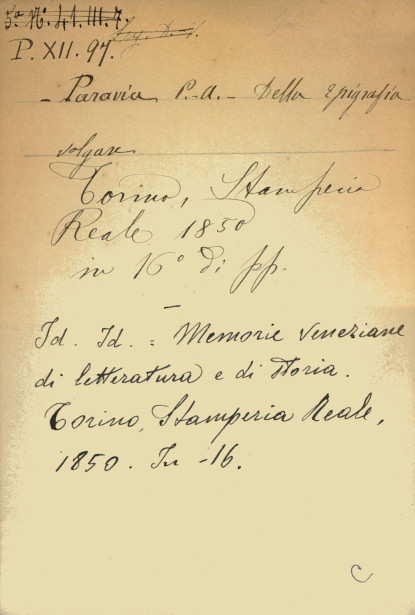 5a N. 41. III. 7.
P. XII. 97.
- Paravia P.-A. - Della Epigrafia
volgare
Torino, Stamperia
Reale 1850
in 16° di pp.
—
Id. Id. : Memorie veneziane
di letteratura e di storia.
Torino, Stamperia Reale,
1850. In -16.
C